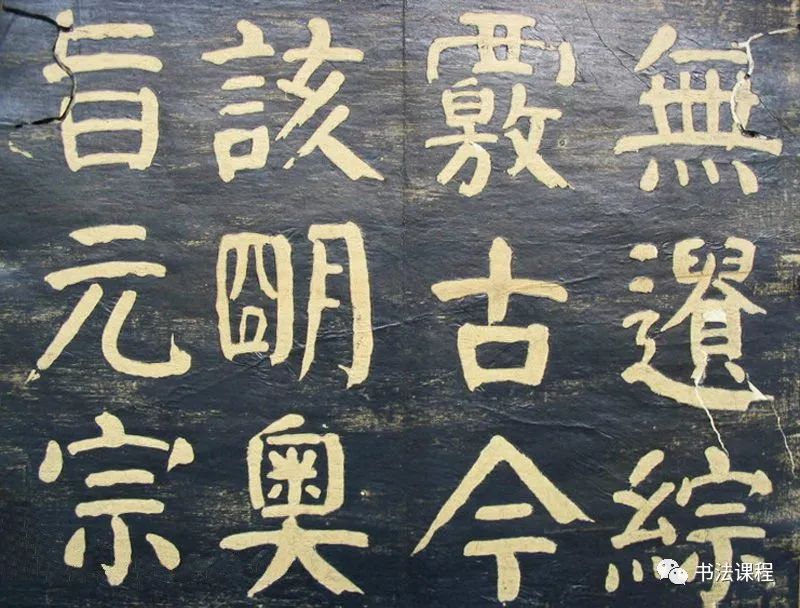 無遺綜
覈古今
該朙奧
旨元宗
书法课程